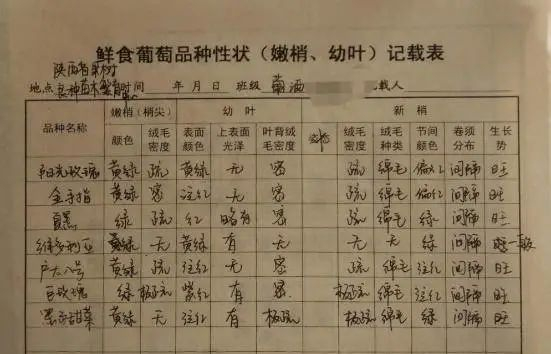 鲜食葡萄品种性状（嫩梢、幼叶）记载表
陕西省果树
地点 良种苗木繁育 时间 年 月 日 班级 葡酒 记载人
嫩梢（梢尖） 幼叶 新梢
品种名称 颜色 绒毛密度 表面颜色 上表面光泽 叶背绒毛密度 姿态 绒毛密度 绒毛种类 节间颜色 卷须分布 生长势
阳光玫瑰 黄绿 疏 黄绿 无 密 疏 绵毛 偏红 间隔 旺
金手指 黄绿 密 注红 无 密 疏 绵毛 偏红 间隔 旺
夏黑 绿 疏 红 略有 密 疏 绵毛 绿 间隔 旺
维多利亚 黄绿 无 黄绿 有 无 无 无 绿 间隔 一般
户太八号 黄绿 疏 注红 无 密 疏 绵毛 注红 间隔 旺
巨玫瑰 绿 极疏 紫红 有 密 极疏 绵毛 注红 间隔 旺
黑 甜菜 黄绿 无 注红 有 极疏 极疏 绵毛 绿 间隔 旺